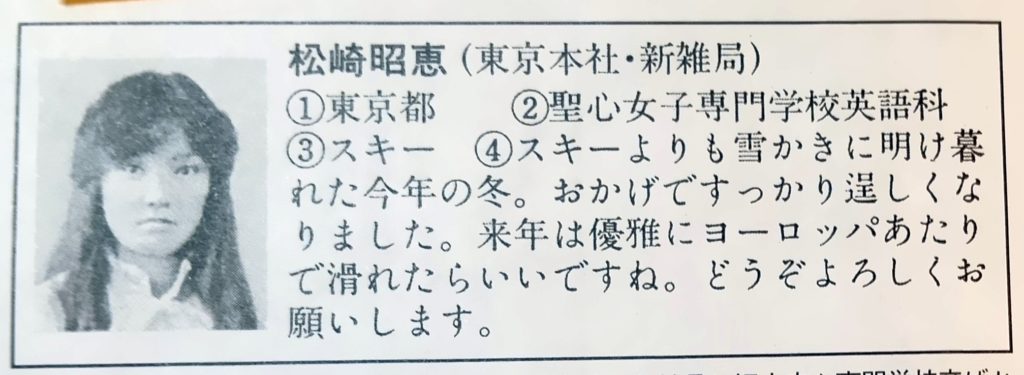 松崎昭恵（東京本社・新雑局）
①東京都　②聖心女子専門学校英語科
③スキー　④スキーよりも雪かきに明け暮
れた今年の冬。おかげですっかり逞しくな
りました。来年は優雅にヨーロッパあたり
で滑れたらいいですね。どうぞよろしくお
願いします。